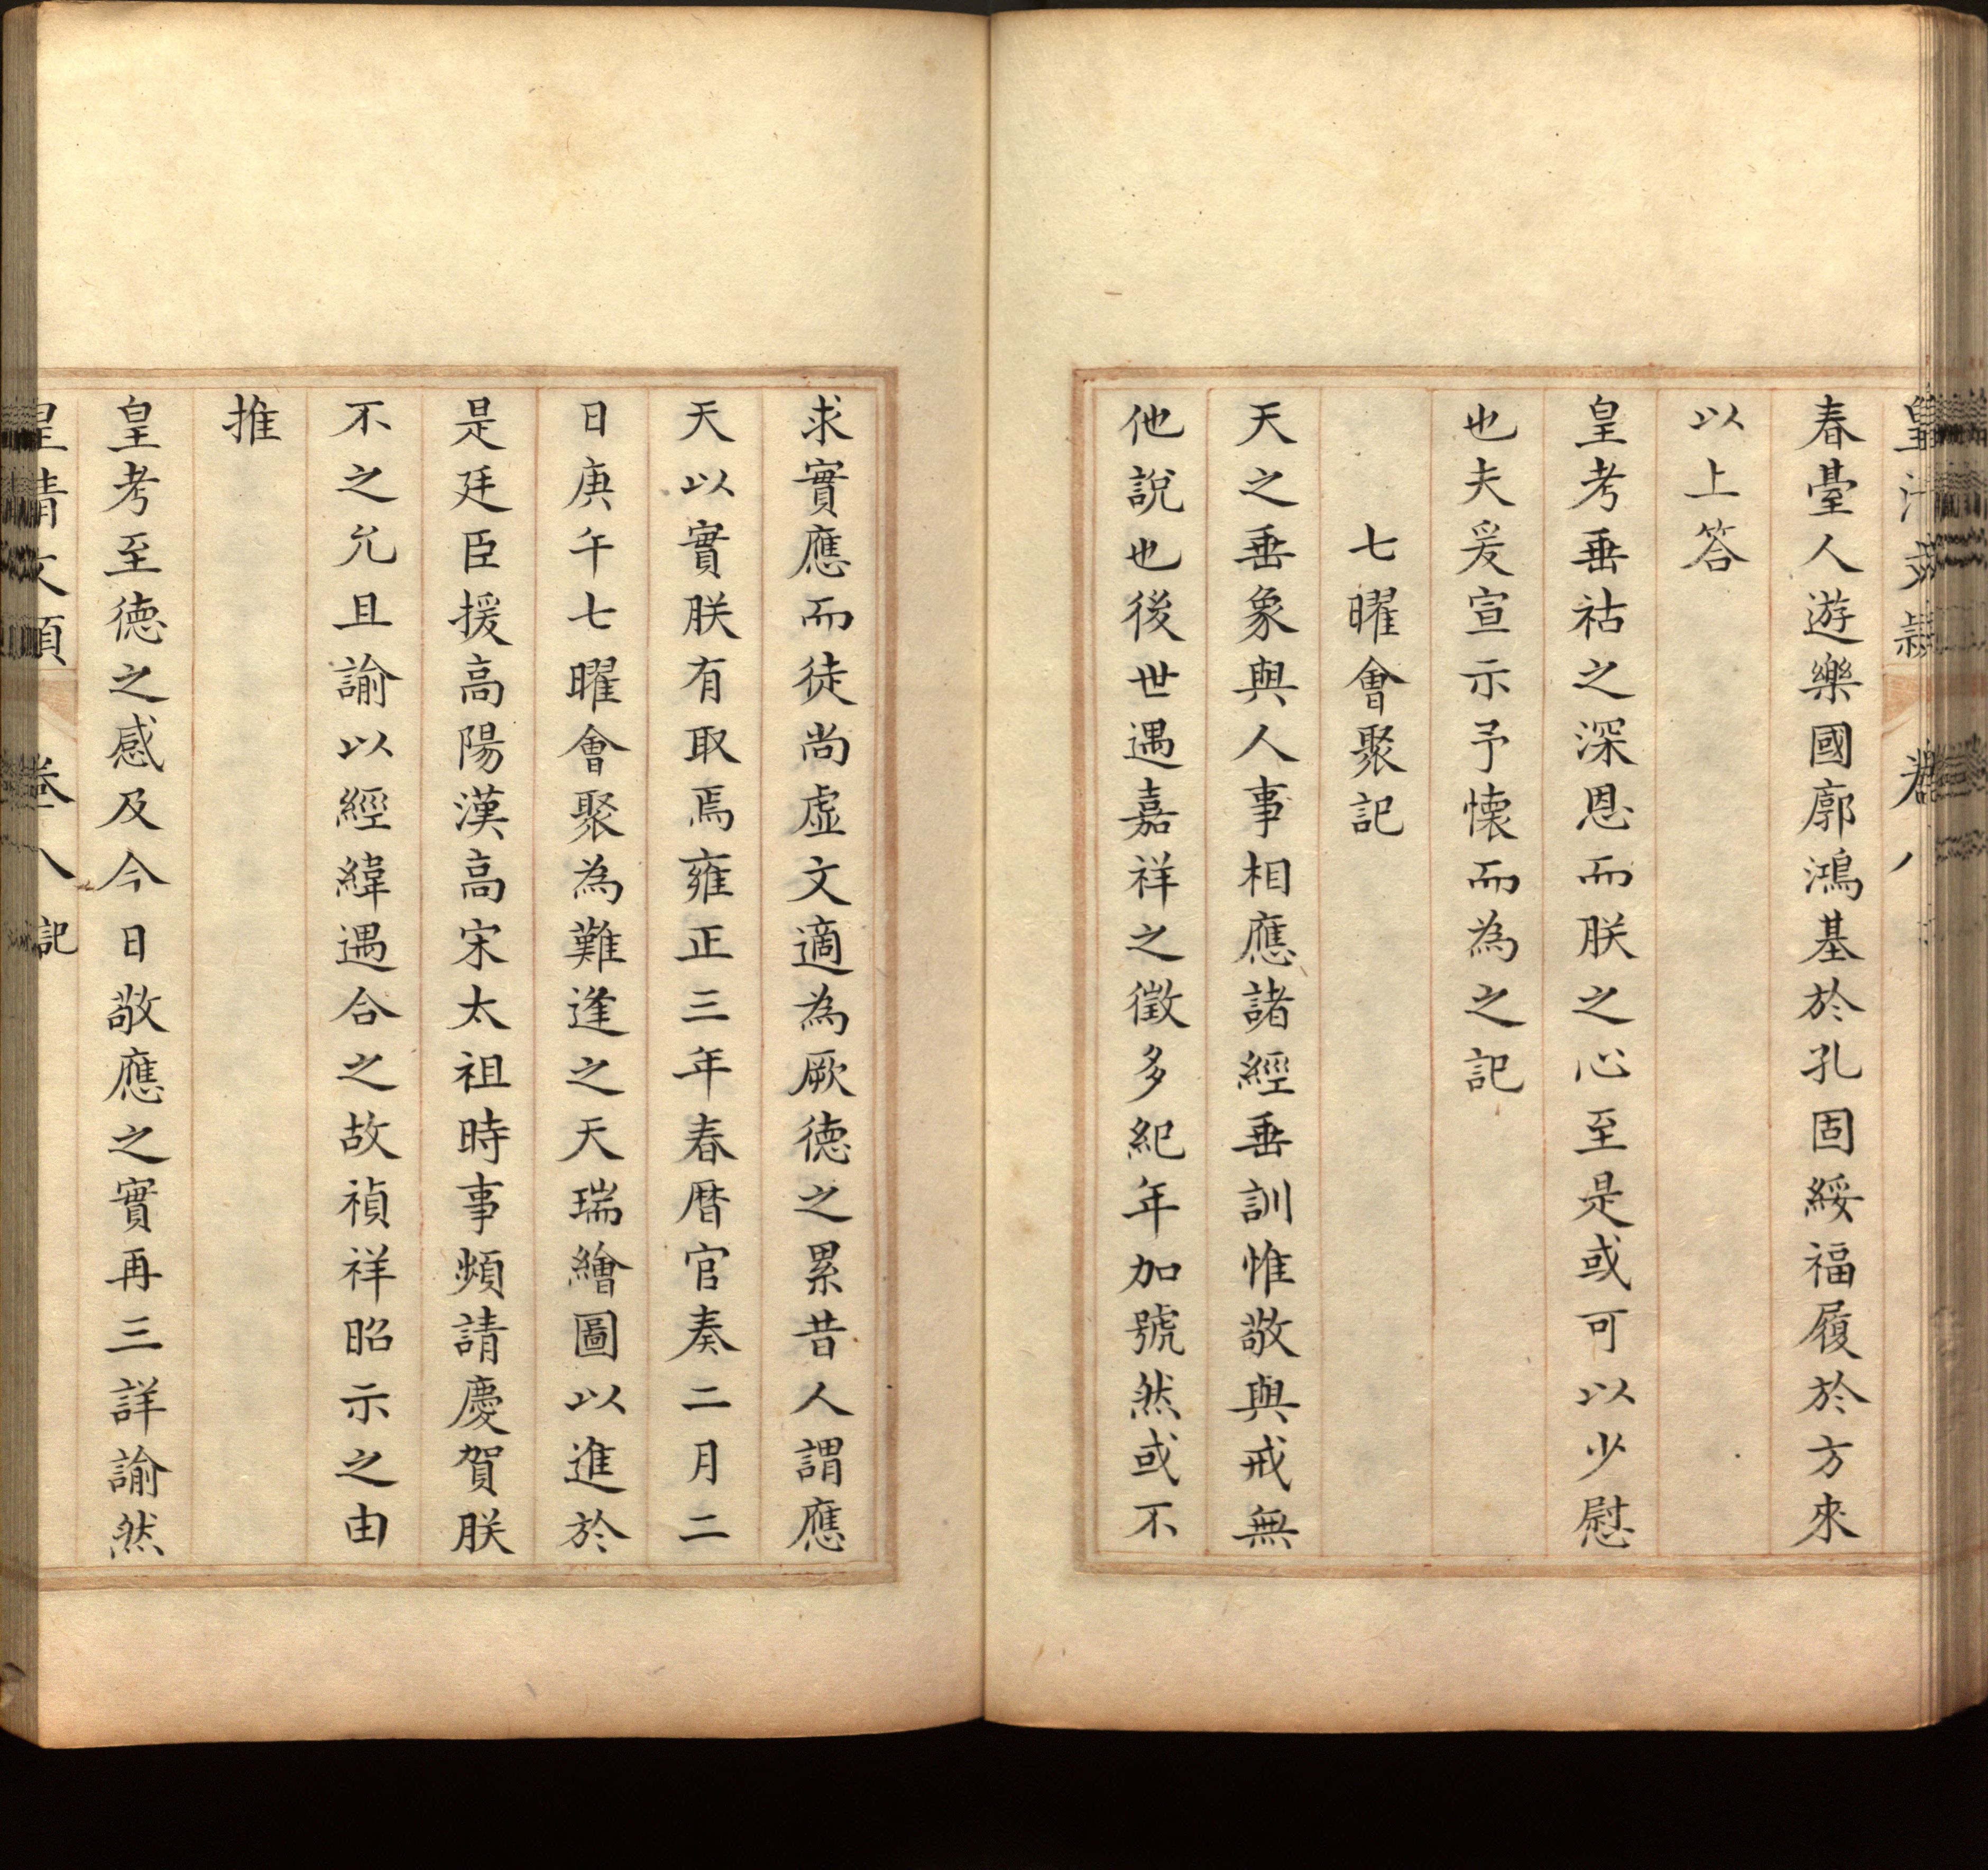 春臺人遊樂國廓鴻基於孔固綏福履於方來
以上答
皇考垂祜之深恩而朕之心至是或可以少慰
也夫爰宣示予懷而為之記
七曜會聚記
天之垂象與人事相應諸經垂訓惟敬與戒無
他說也後世遇嘉祥之徵多紀年加號然或不
求實應而徒尚虛文適為厥德之累昔人謂應
天以實朕有取焉雍正三年春曆官奏二月二
日庚午七曜會聚為難逢之天瑞繪圖以進於
是廷臣援高陽漢高宋太祖時事頻請慶賀朕
不之允且諭以經緯遇合之故禎祥昭示之由
推
皇考至德之感及今日敬應之實再三詳諭然
皇清文穎 卷八 記